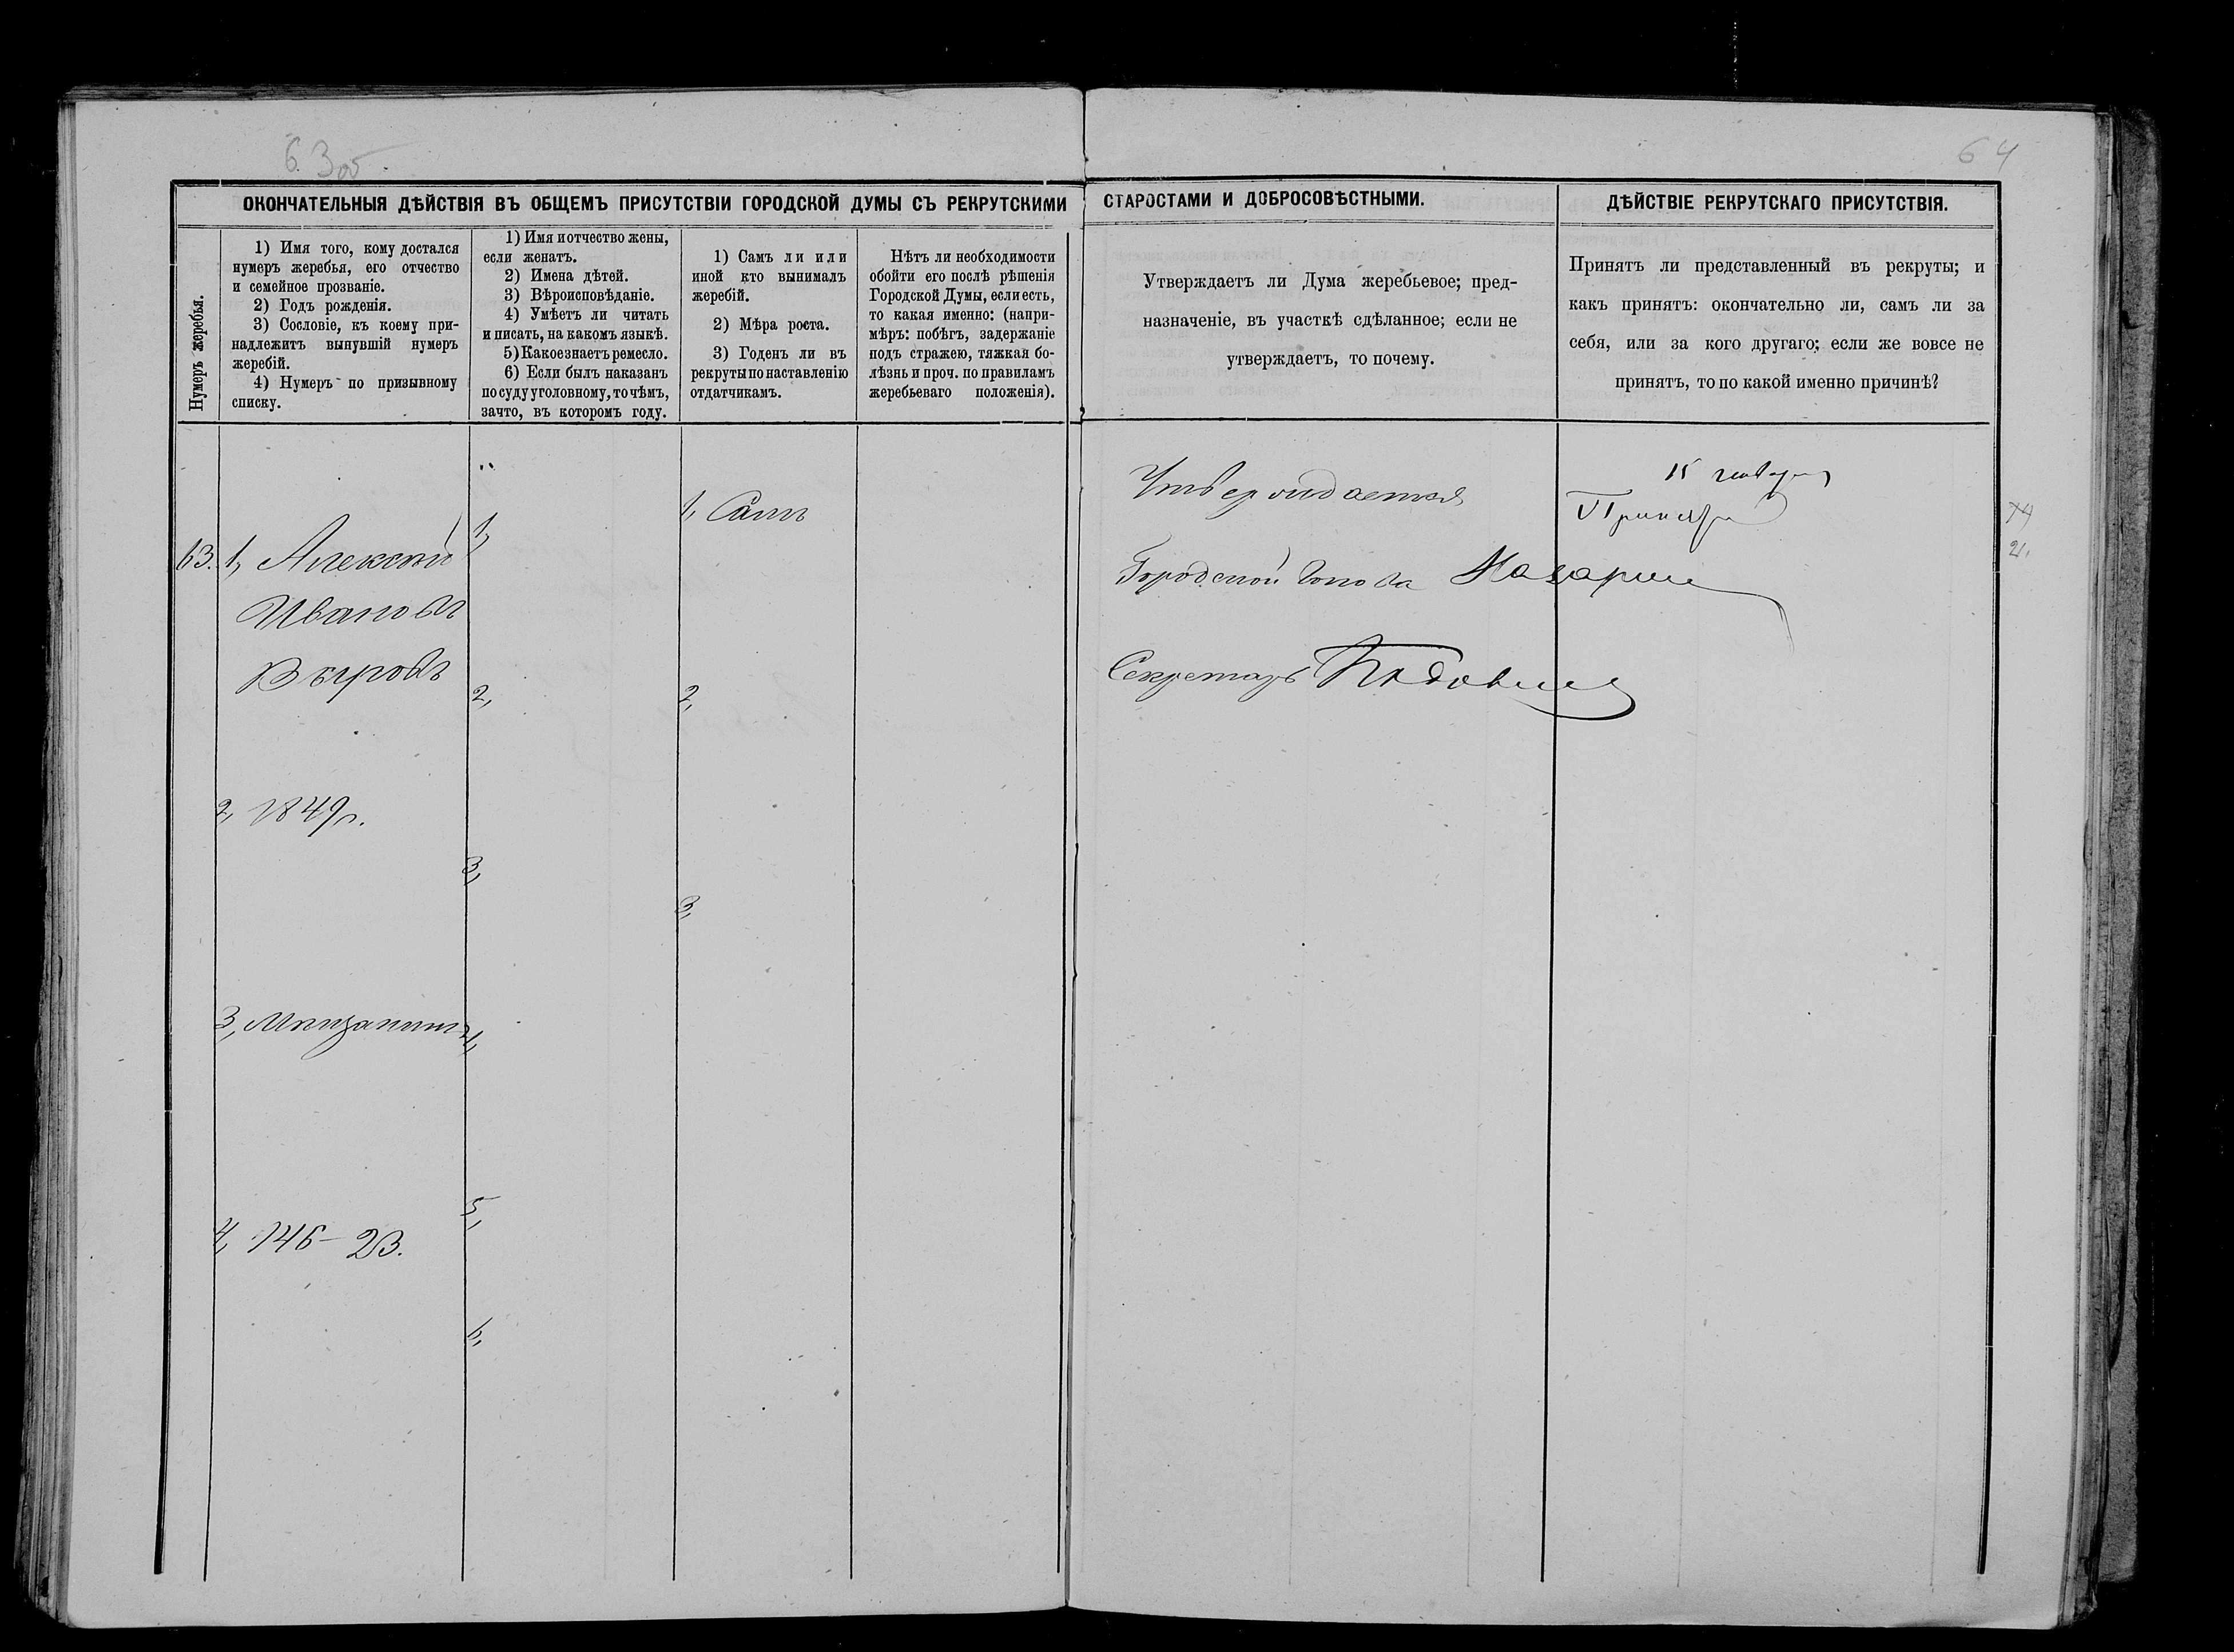 63об
64
ОКОНЧАТЕЛЬНЫЯ ДѢЙСТВІЯ ВЪ ОБЩЕМЪ ПРИСУТСТВІИ ГОРОДСКОЙ ДУМЫ СЪ РЕКРУТСКИМИ СТАРОСТАМИ И ДОБРОСОВѢСТНЫМИ.
ДѢЙСТВІЕ РЕКРУТСКАГО ПРИСУТСТВІЯ.
Нумеръ жеребья.
1) Имя того, кому достался
нумеръ жеребья, его отчество
и семейное прозваніе.
2) Годъ рожденія.
3) Сословіе, къ коему при-
надлежитъ вынувшій нумеръ
жеребій.
4) Нумеръ по призывному
списку.
1) Имя и отчество жены,
если женатъ.
2) Имена дѣтей.
3) Вѣроисповѣданіе.
4) Умѣетъ ли читать
и писать, на какомъ языкѣ.
5) Какое знаетъ ремесло.
6) Если былъ наказанъ
по суду уголовному, то чѣмъ,
за что, въ которомъ году.
1) Самъ ли или
иной кто вынималъ
жеребій.
2) Мѣра роста.
3) Годенъ ли въ
рекруты по наставленію
отдатчикамъ.
Нѣтъ ли необходимости
обойти его послѣ рѣшенія
Городской Думы, если есть,
то какая именно: (напри-
мѣръ: побѣгъ, задержаніе
подъ стражею, тяжкая бо-
лѣзнь и проч. по правиламъ
жеребьеваго положенія).
Утверждаетъ ли Дума жеребьевое; пред-
назначеніе, въ участкѣ сдѣланное; если не
утверждаетъ, то почему.
Принятъ ли представленный въ рекруты; и
какъ принятъ: окончательно ли, самъ ли за
себя, или за кого другаго; если же вовсе не
принятъ, то по какой именно причинѣ?
63. 1, Алексѣй
Ивановъ
2, 1849 г.
3, Мѣщанинъ
4, 146 - 23.
1,
2,
3,
4,
5,
6,
1, Самъ
2,
3,
Утверждается
Городской Голова
Секретарь
15 января
Принятъ
2.